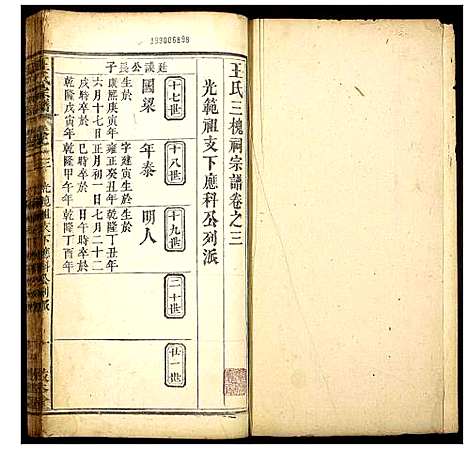 193006898
王氏三槐祠宗譜卷之三
光範祖支下應科公列派
十七世
十八世
十九世
二十世
廿一世
廷議公長子
國梁
生於
康熙庚寅年
六月十七日
戌時卒於
乾隆戊寅年
年泰
字建寅生於
雍正癸丑年
正月初一日
巳時卒於
乾隆甲午年
明人
生於
乾隆丁丑年
七月二十二
日辰時卒於
乾隆丁酉年
王氏宗譜
光範祖支下應科公列派